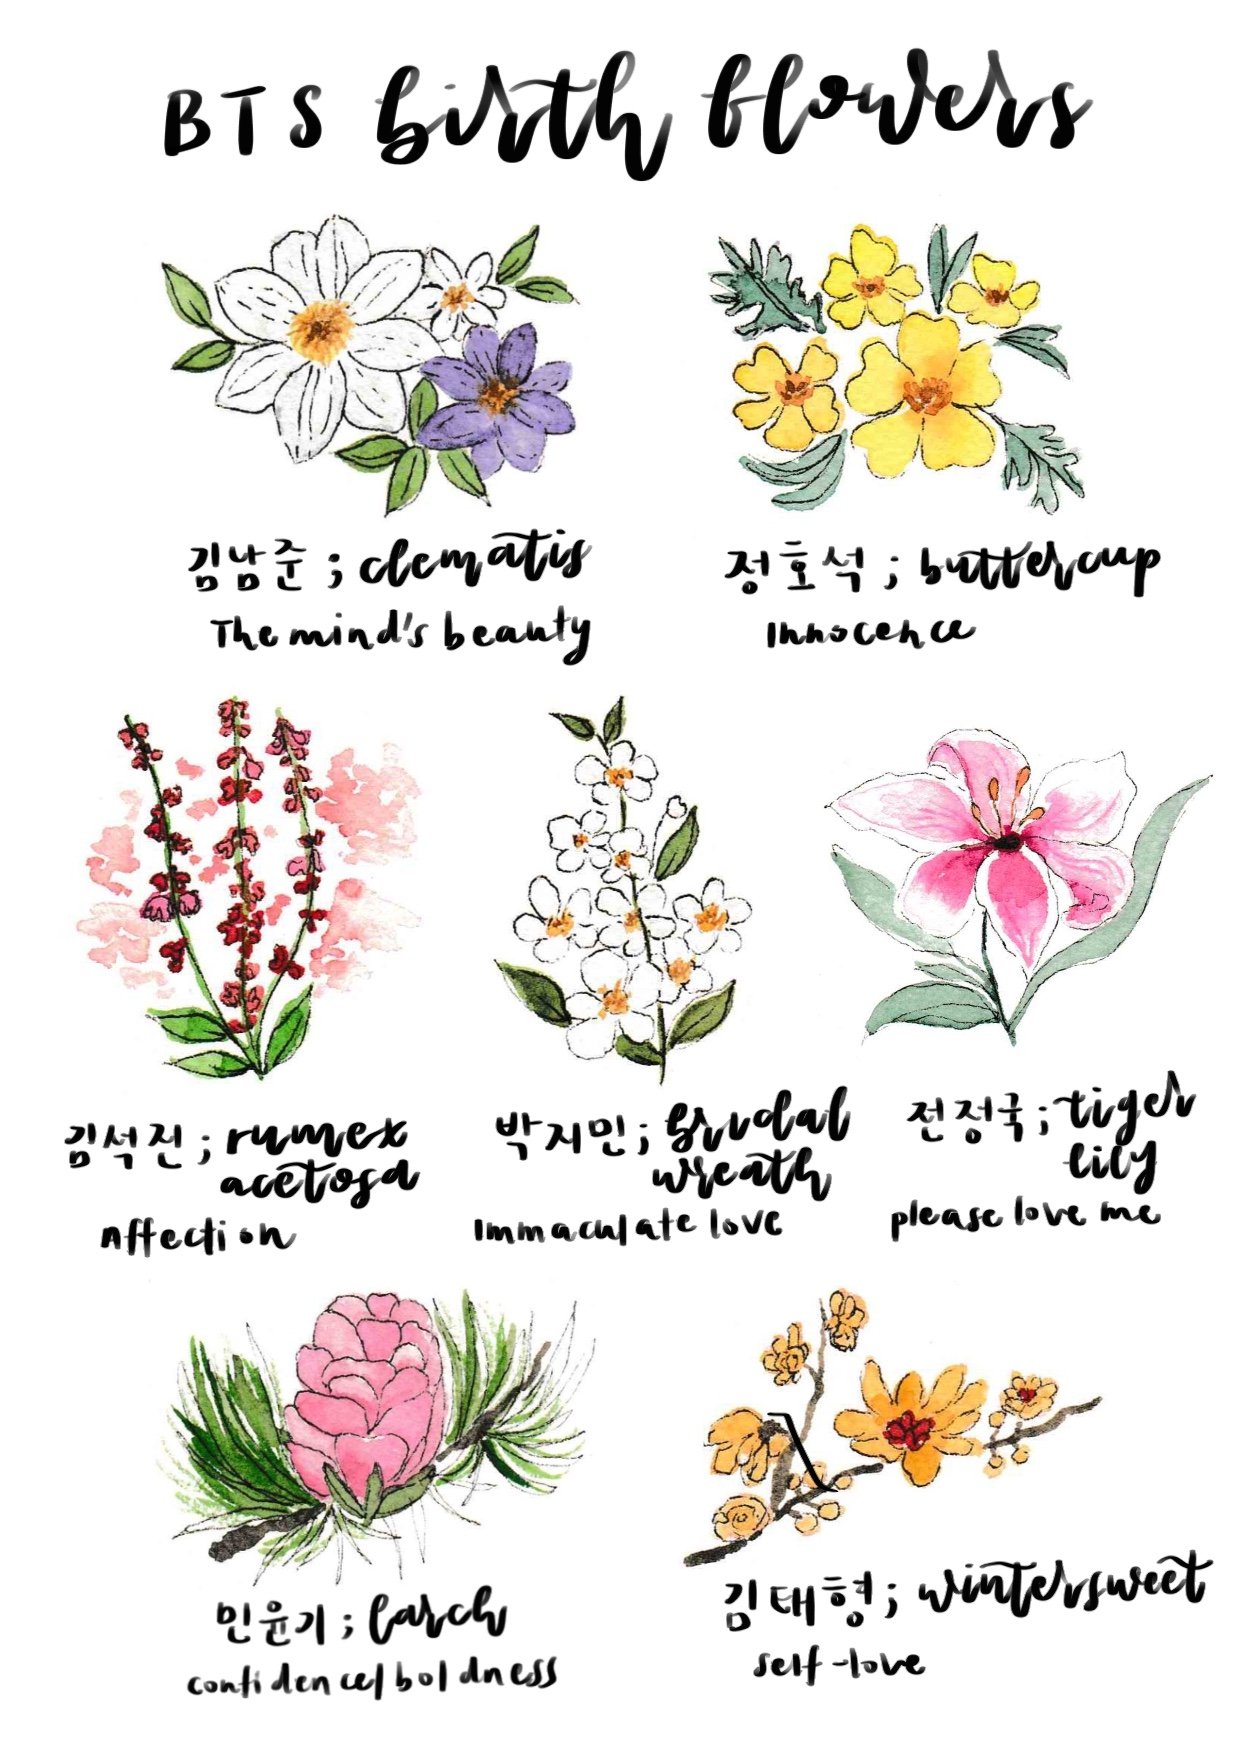 BTS birth flowers
김남준 ; clematis
The mind's beauty
정호석 ; buttercup
Innocence
김석진 ; rumex
acetosa
Affection
박지민 ; bridal
wreath
Immaculate love
전정국 ; tiger
lily
please love me
민윤기 ; larch
confidence/boldness
김태형 ; wintersweet
self-love